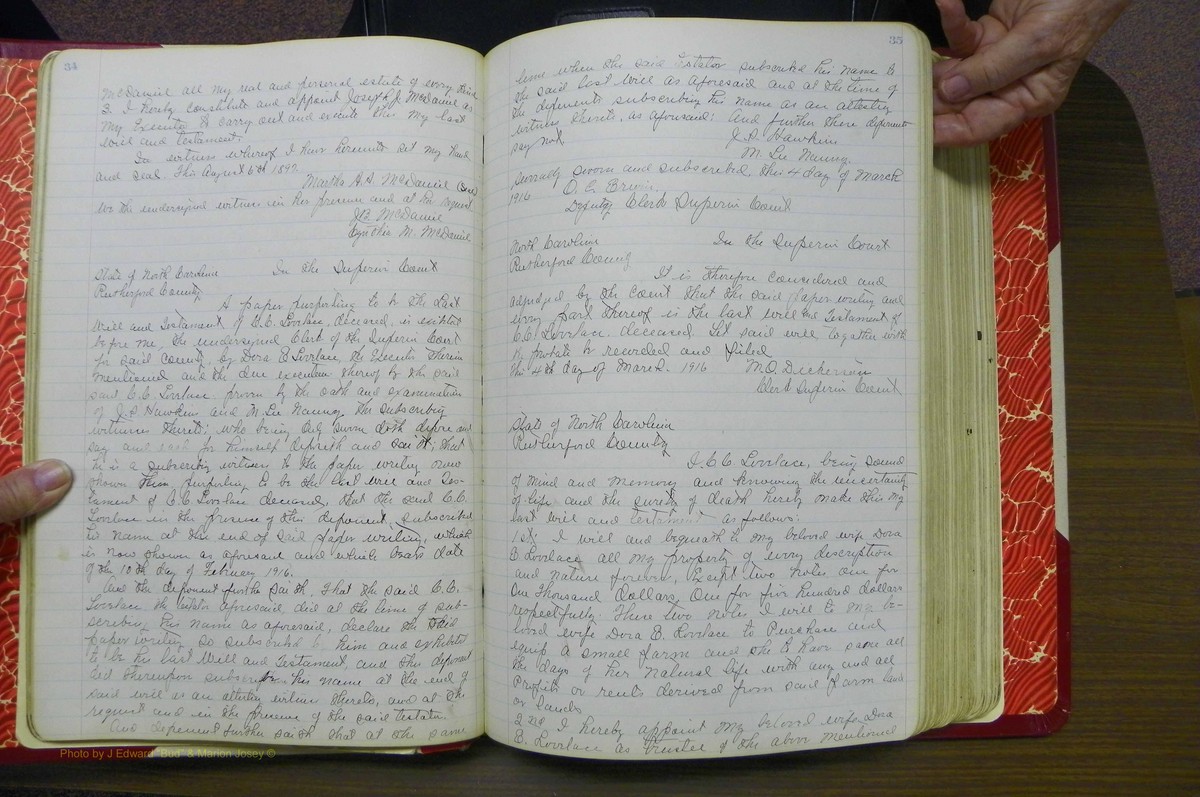 34
McDaniel all my real and personal estate of every kind
2. I hereby constitute and appoint Joseph J. McDaniel as
my Executor to carry out and execute this my last
will and testament.
In witness whereof I have hereunto set my hand
and seal this August 6th 1892.
Martha A.S. McDaniel (Seal)
We the undersigned witness in her presence and at her request
McDaniel
Cynthia M. McDaniel
State of North Carolina In the Superior Court
Rutherford County
A paper purporting to be the Last
Will and Testament of C.C. Lovelace, deceased, is exhibited
before me, the undersigned Clerk of the Superior Court
for said County, by Dora B. Lovelace, the Executor therein
mentioned and the due execution thereof by the said
said C.C. Lovelace proven by the oath and examination
of J.P. Hawkins and M. Lee Nanney the subscribing
witnesses thereto; who being duly sworn doth depose and
say and each for himself deposeth and saith; that
he is a subscribing witness to the paper writing now
shown them purporting to be the last will and Tes-
tament of C.C. Lovelace deceased, that the said C.C.
Lovelace in the presence of this deponent, subscribed
his name at the end of said paper writing, which
is now shown as aforesaid and which bears date
of the 10th day of February 1916.
And the deponent further saith, That the said C.C.
Lovelace the testator aforesaid did at the time of sub-
scribing his name as aforesaid, declare the said
paper writing so subscribed by him and exhibited
to be his last Will and Testament, and this deponent
did thereupon subscribe his name at the end of
said will as an attesting witness thereto, and at the
request and in the presence of the said testator.
And deponent further saith that at the same
35
time when the said Testator subscribed his name to
the said last will as aforesaid and at the time of
the deponents subscribing his name as an attesting
witness thereto, as aforesaid; and further these deponents
say not.
J.P. Hawkins
M. Lee Nanney.
Severally sworn and subscribed, this 4 day of March
1916
Deputy Clerk Superior Court
North Carolina In the Superior Court
Rutherford County
It is therefore considered and
adjudged by the Court that the said paper writing and
every part thereof is the last will and Testament of
C.C. Lovelace deceased. Let said will, together with
its probate be recorded and filed
this 4th day of March. 1916 M.O. Dickerson
Clerk Superior Court
State of North Carolina
Rutherford County
I C.C. Lovelace, being sound
of mind and memory and knowing the uncertainty
of life and the surety of death hereby make this my
last will and testament as follows:
1st. I will and bequeath to my beloved wife Dora
B Lovelace all my property of every description
and nature forever, Except two notes one for
One Thousand dollars, One for five hundred dollars
respectfully. These two notes I will to my be-
loved wife Dora B. Lovelace to Purchase and
equip a small farm and she to have same all
the days of her natural life with any and all
Profits or rents derived from said farm land
or lands
2nd I hereby appoint my beloved wife Dora
B. Lovelace as trustee of the above mentioned
Photo by J Edward "Bud" & Marion Josey ©